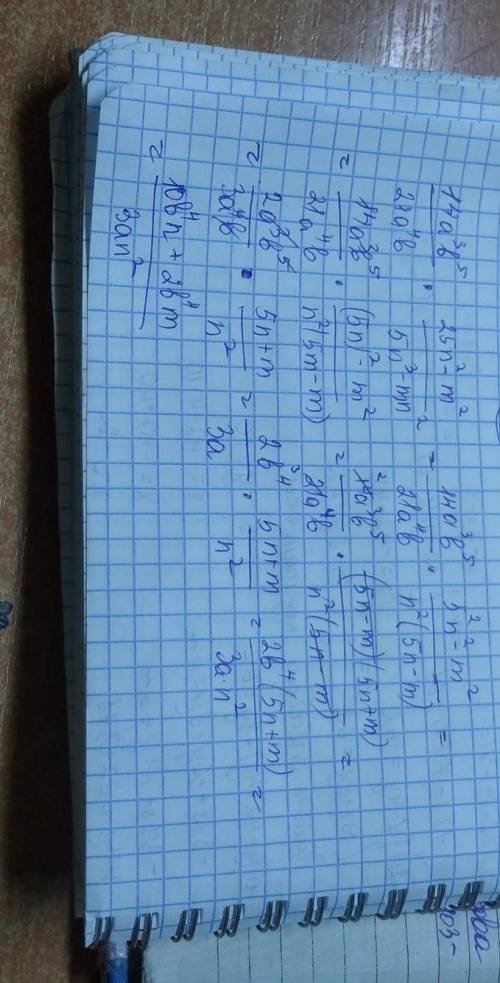 14a³b⁵/21a⁴b · 25n²-m²/5n³-mn² = 14a³b⁵/21a⁴b · 5n²²-m²/n²(5n-m) =
= 14a³b⁵/21a⁴b · (5n)²-m²/n²(5m-m) = 14a³b⁵/21a⁴b · (5n-m)(5n+m)/n²(5n-m) =
= 2a³b⁵/3a⁴b · 5n+m/n² = 2b⁴/3a · 5n+m/n² = 2b⁴(5n+m)/3a·n² =
= 10b⁴n+2b⁴m/3an²